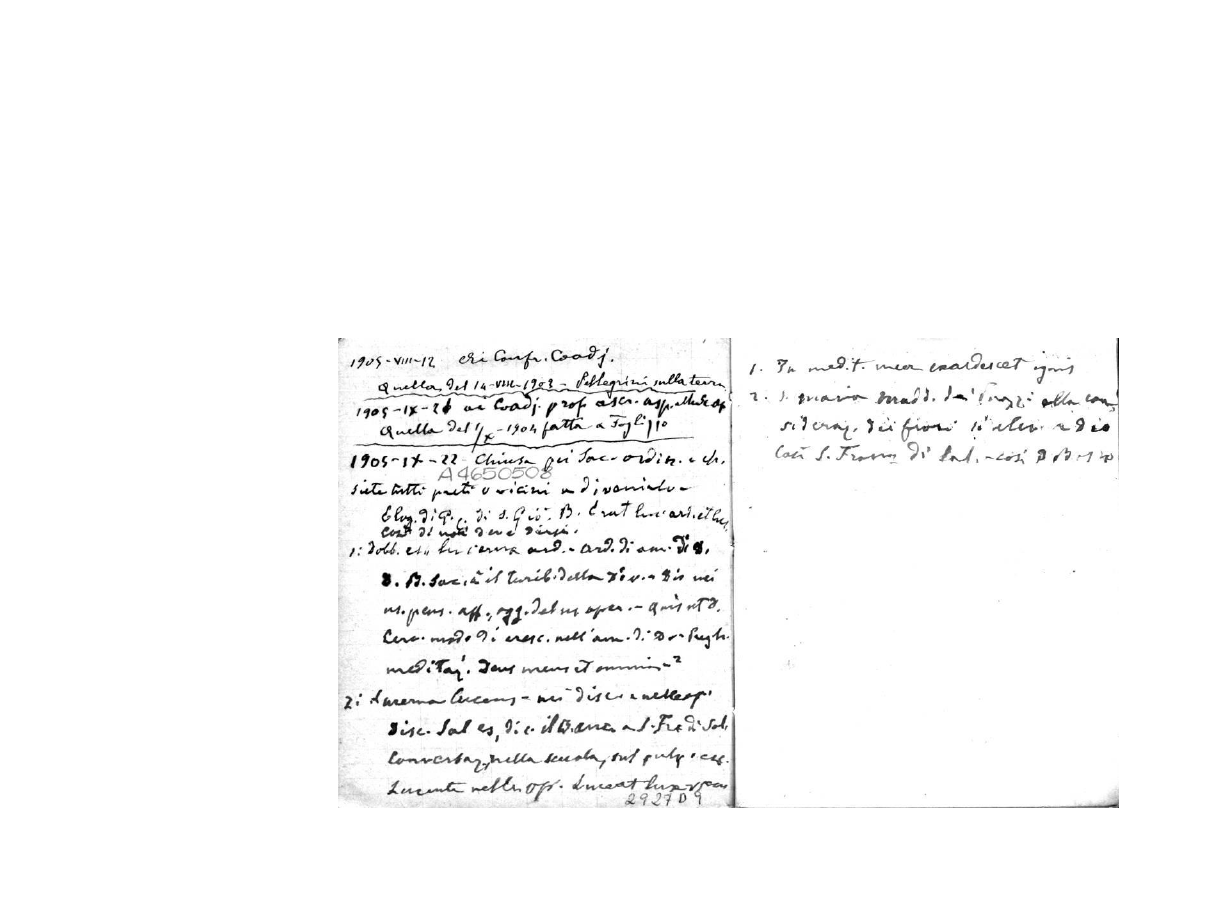 1905-VIII-12 ai Confr. Coadj.
Quella del 14-VIII-1903 - Pellegrini sulla terra
1905-IX- ai Coadj. prof. ascr. asp.
Quella del -1904 fatta a Foglizzo
1905-IX-22 - Chiusa pei Sac. ordin. e ch.
A4650508
siete tutti preti o vicini a divenirlo -
Elog. di G. C. di S. Gio. B. Erat luc. ard. et luc.
Così di voi deve dirsi.
1: ard. - ard. di am. di D.
D. B. Sac. è il turib. della
ns. pens. aff., ogg. del ns oper. - Quis ut D.
Cerc. modo di cresc. nell'am. di D. - Pregh.
meditaz. Deus meus et omnia - ²
2: Lucerna lucens - nei disc. e nelle op.
Disc. Sal es, dic. il a S. Fr. di Sal.
Conversaz., nella scuola, sul pulp.
Lucente nelle op. Luceat lux v.
2927D9
1. In medit. mea exardescet ignis
2. S. Maria Madd. de' Pazzi alla con
sideraz. dei fiori si elev. a dio
Così S. Franc di Sal. - così D B